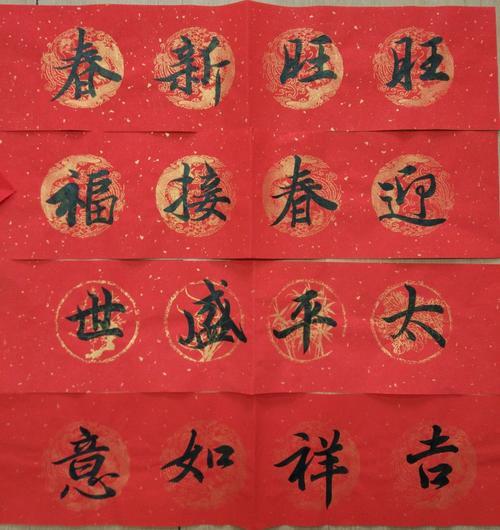 旺旺新春
迎春接福
太平盛世
吉祥如意